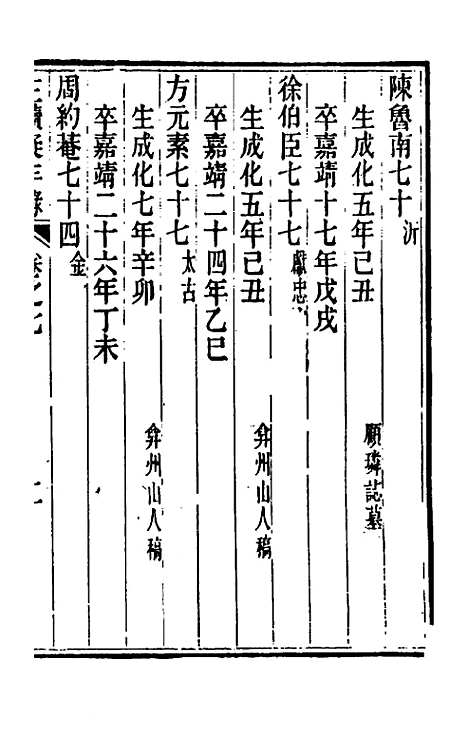 陳魯南七十沂
生成化五年己丑 顧璘誌墓
卒嘉靖十七年戊戌
徐伯臣七十七獻忠
生成化五年己丑 弇州山人稿
卒嘉靖二十四年乙巳
方元素七十七太古
生成化七年辛卯 弇州山人稿
卒嘉靖二十六年丁未
周約菴七十四金
三續疑年錄 卷之七